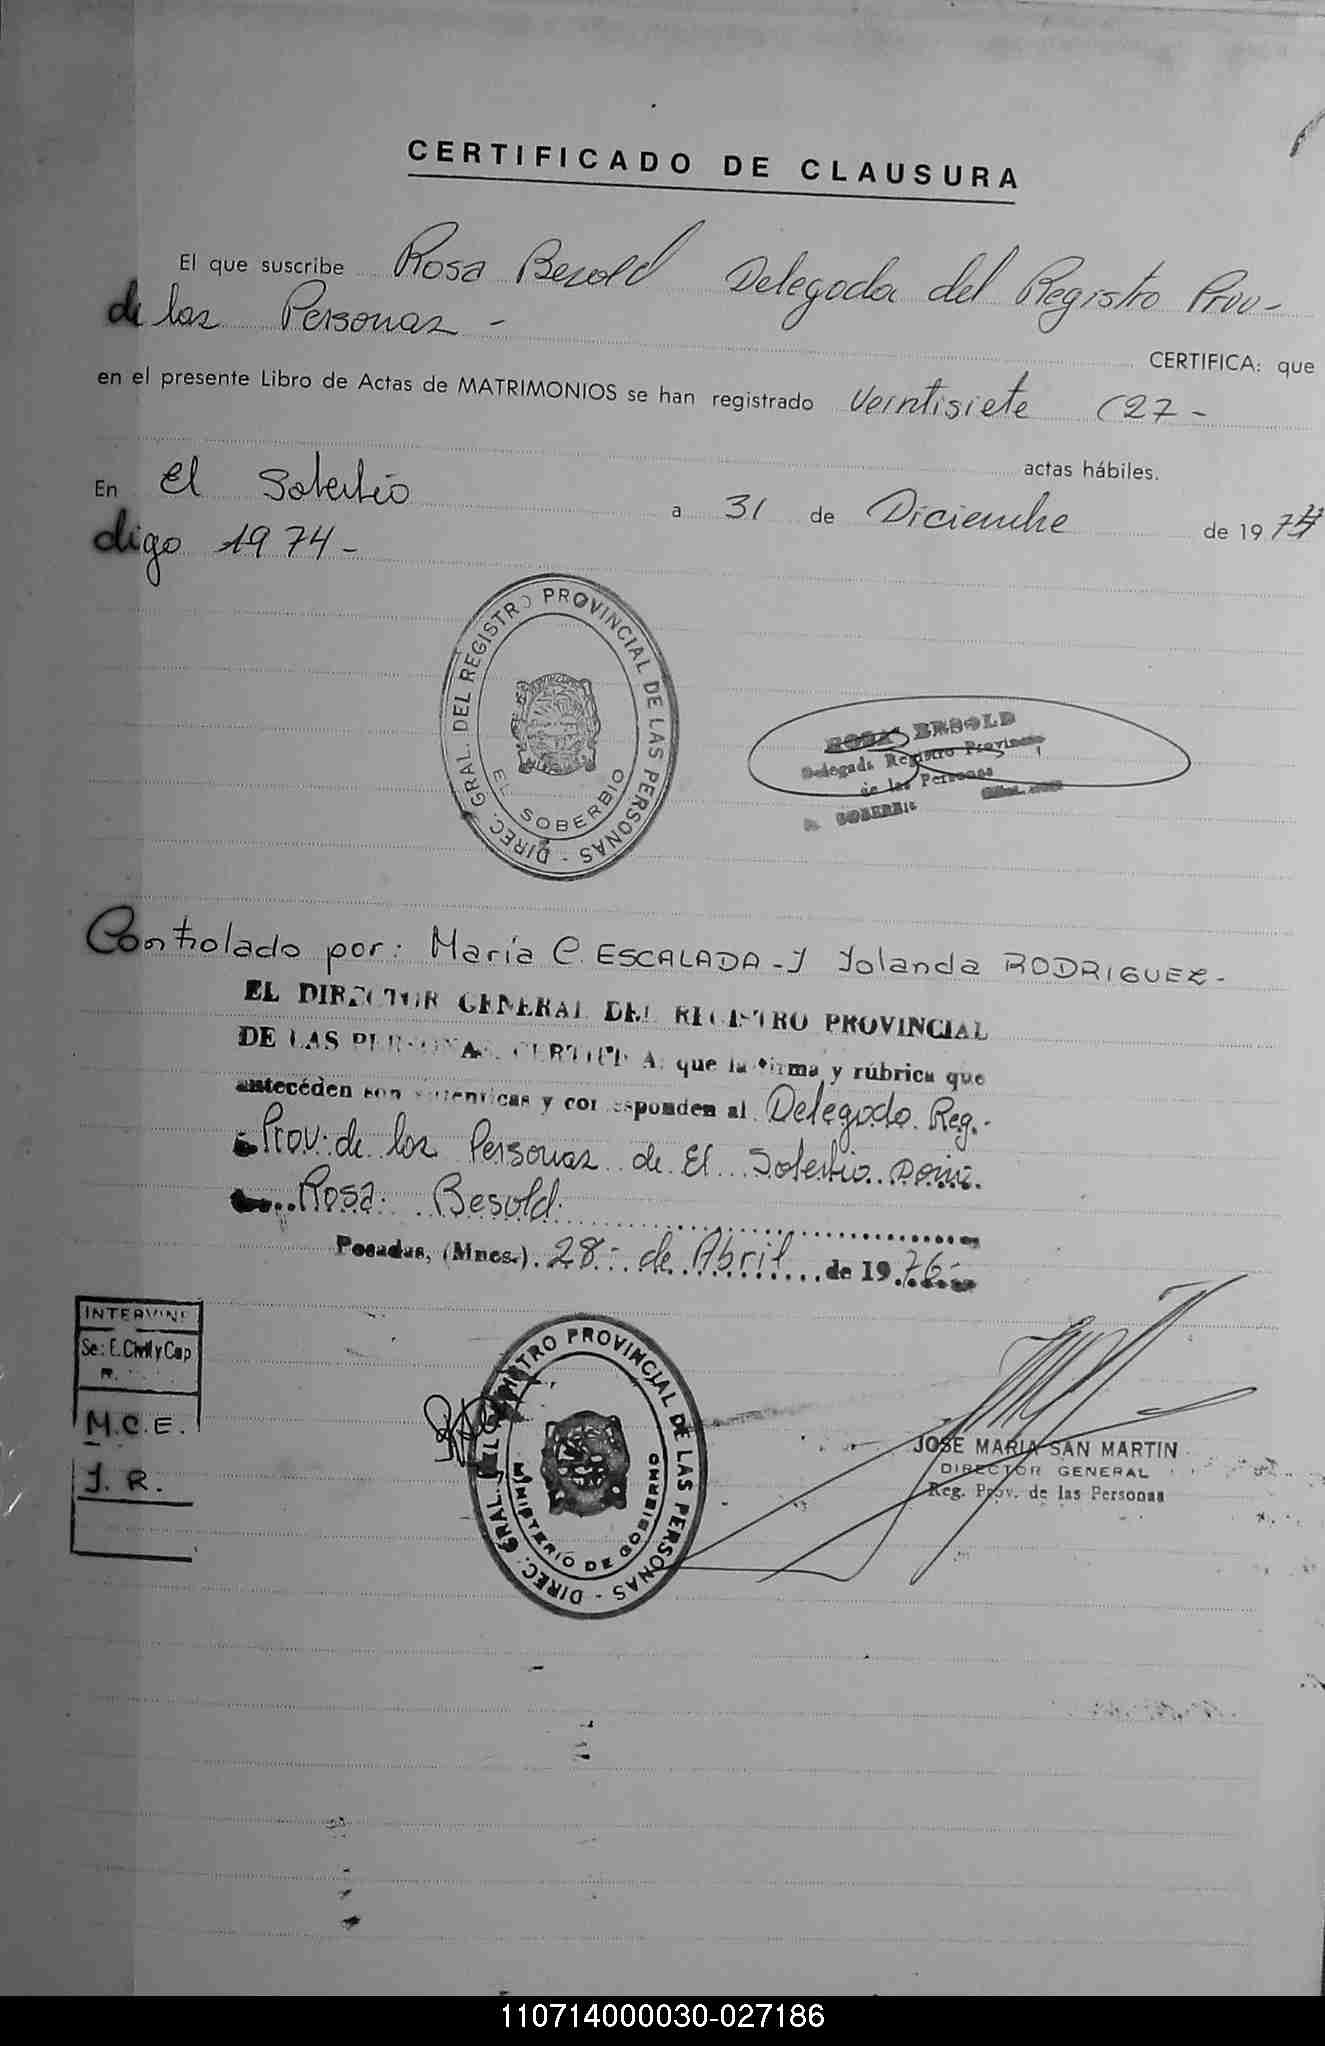 CERTIFICADO DE CLAUSURA
El que suscribe Rosa Besold Delegada del Registro Prov-
de las Personas -
CERTIFICA: que
en el presente Libro de Actas de MATRIMONIOS se han registrado Veintisiete (27-
actas hábiles.
En El Soberbio a 31 de Diciembre de 1974
digo 1974-
DIREC. GRAL. DEL REGISTRO PROVINCIAL DE LAS PERSONAS -
EL SOBERBIO
ROSA BESOLD
Delegada Registro Provincial
de las Personas
SOBERBIO
Controlado por: María C. ESCALADA - Y Yolanda RODRIGUEZ -
EL DIRECTOR GENERAL DEL REGISTRO PROVINCIAL
DE LAS PERSONAS, CERTIFICA: que la firma y rúbrica que
antecéden son autenticas y corresponden al Delegado Reg.-
Prov. de las Personas de El Soberbio
Rosa Besold
Posadas, (Mnes.) 28- de Abril de 1976-
INTERVINE
Sec. E. Civil y Cap
M.C.E.
Y. R.
DIREC. GRAL. DEL REGISTRO PROVINCIAL DE LAS PERSONAS -
MINISTERIO DE GOBIERNO
JOSE MARIA SAN MARTIN
DIRECTOR GENERAL
Reg. Prov. de las Personas
110714000030-027186